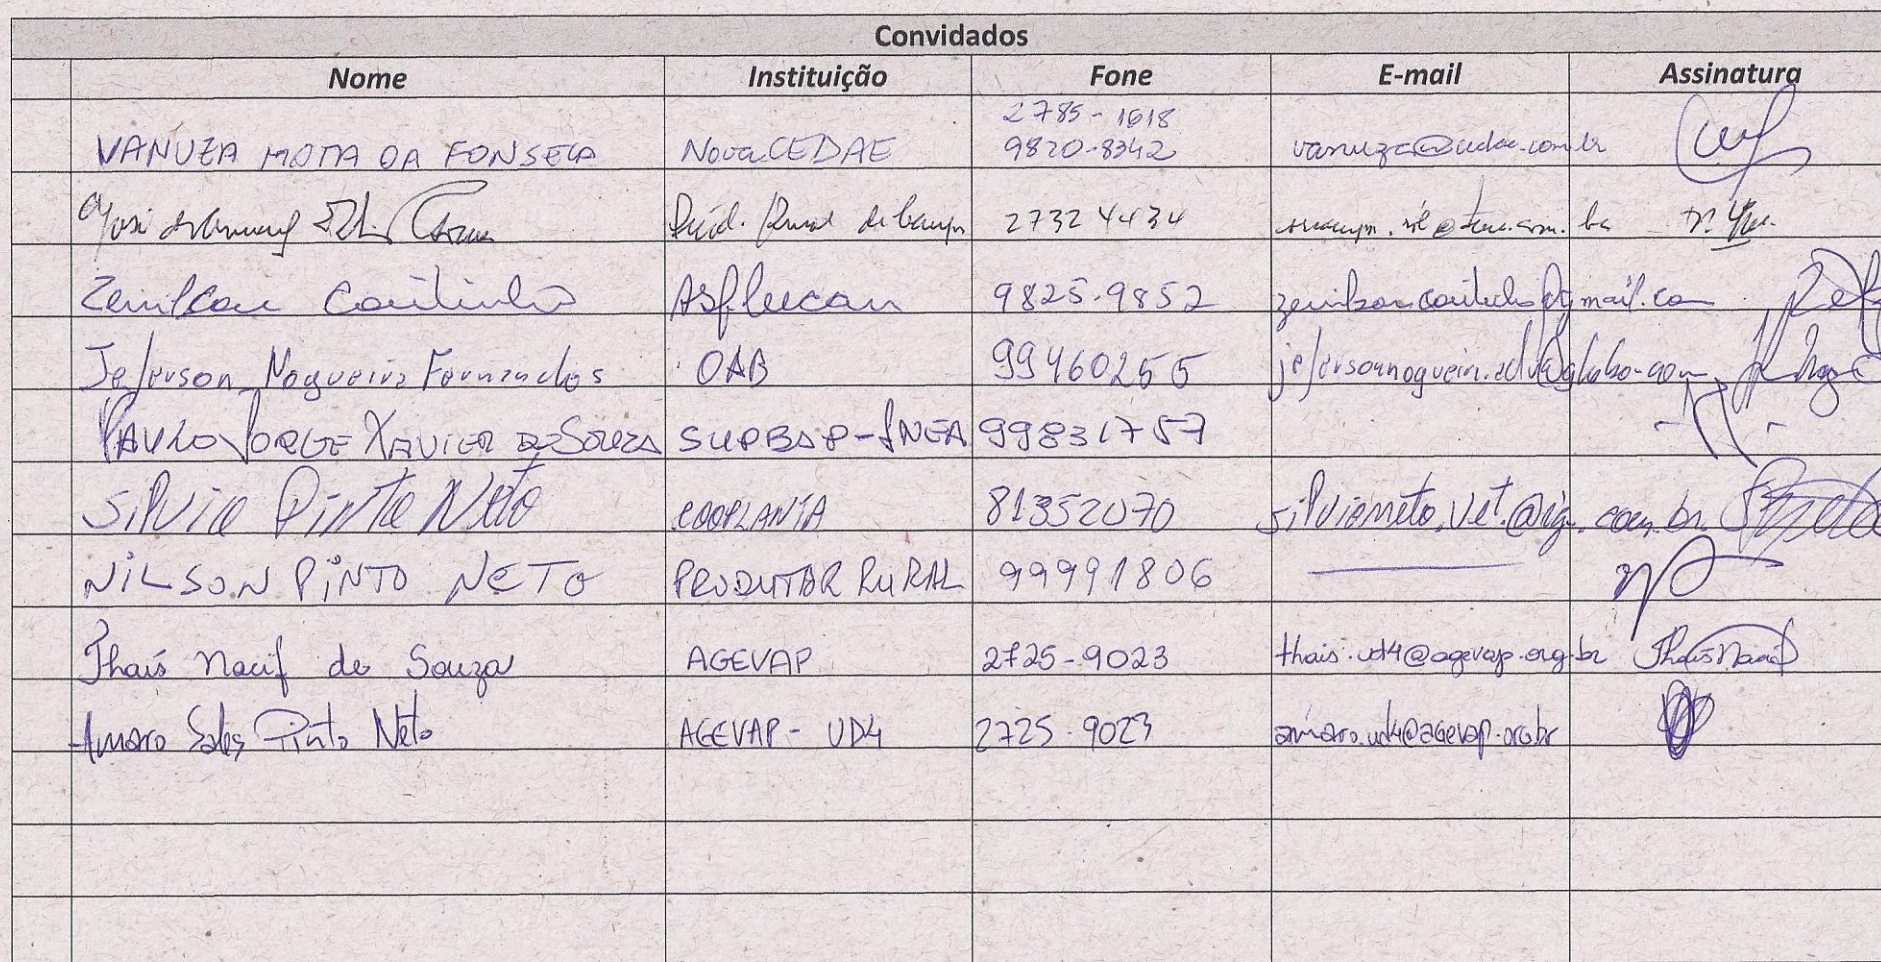 Convidados
Nome Instituição Fone E-mail Assinatura
2785-1618
VANUZA MOTA DA FONSECA Nova CEDAE 9820-8342 vanuza@cedae.com.br
José 2732 4434
Zenilson Coutinho Asflucan 9825-9852 zenilson.coutinho@gmail.com
Jeferson Nogueira Fernandes OAB 99460255 jefersonnogueira.adv@globo.com
PAULO JORGE XAVIER DE SOUZA SUPBAP-INEA 99831757
Silvio Pinto Neto COOPLANTA 81352070 silvioneto.vet.@ig.com.br
NILSON PINTO NETO PRODUTOR RURAL 99991806
Thaís Nacif de Souza AGEVAP 2725-9023 thais.ud4@agevap.org.br Thaís Nacif
Amaro Sales Pinto Neto AGEVAP - UD4 2725-9023 amaro.ud4@agevap.org.br